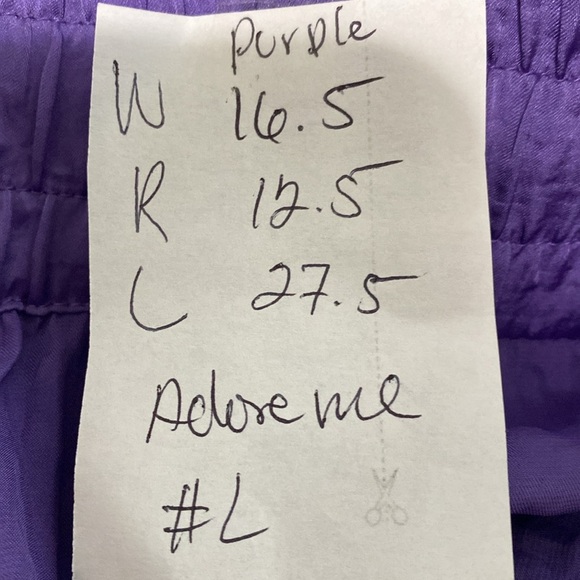 Purple
W 16.5
R 12.5
L 27.5
Adore me
#L